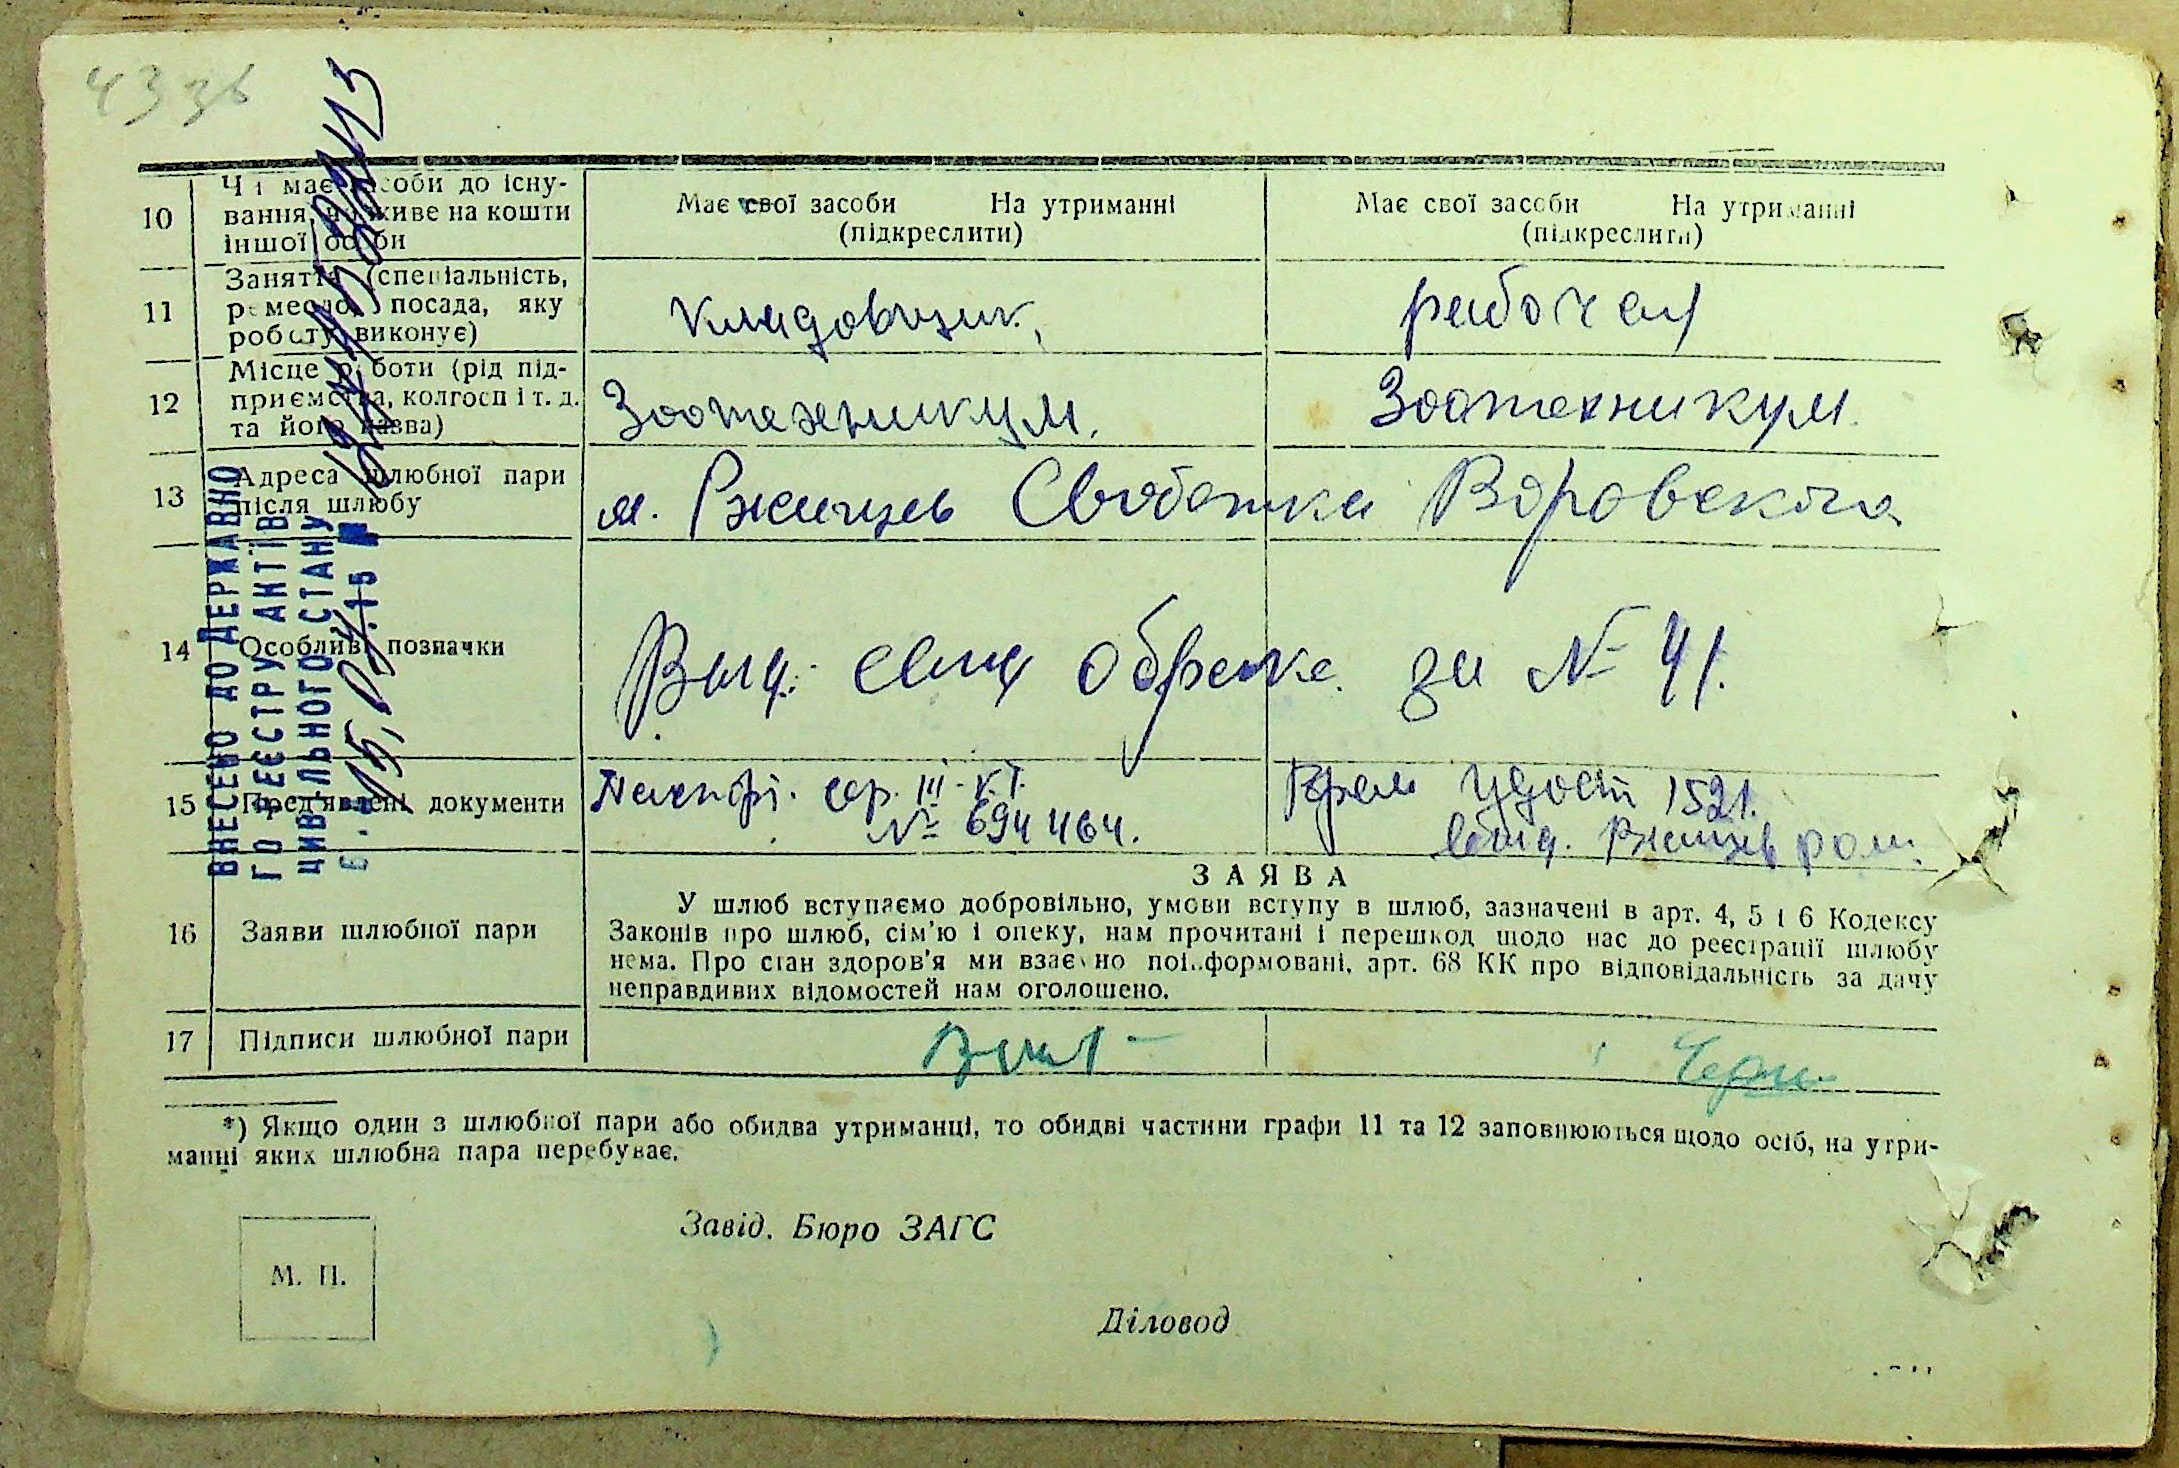 43 зв
10
Чи має засоби до існу-
вання, чи живе на кошти
іншої особи
Має свої засоби На утриманні
(підкреслити)
Має свої засоби На утриманні
(підкреслити)
11
Заняття (спеціальність,
ремесло, посада, яку
роботу виконує)
Кладовщик,
рабочая
12
Місце роботи (рід під-
приємства, колгосп і т. д.
та його назва)
Зоотехникум.
Зоотехникум.
13
Адреса шлюбної пари
після шлюбу
м. Ржищев Слободка Воровского
14
Особливі позначки
за № 41.
15
Пред'явлені документи
Паспорт. сер. III-К.Т.
№ 694464.
Врем удост 1521.
выд. Ржищев ром.
16
Заяви шлюбної пари
ЗАЯВА
У шлюб вступаємо добровільно, умови вступу в шлюб, зазначені в арт. 4, 5 і 6 Кодексу
Законів про шлюб, сім'ю і опеку, нам прочитані і перешкод щодо нас до реєстрації шлюбу
нема. Про стан здоров'я ми взаємно поінформовані, арт. 68 КК про відповідальність за дачу
неправдивих відомостей нам оголошено.
17
Підписи шлюбної пари
*) Якщо один з шлюбної пари або обидва утриманці, то обидві частини графи 11 та 12 заповнюються щодо осіб, на утри-
манні яких шлюбна пара перебуває.
Завід. Бюро ЗАГС
М. П.
Діловод
ВНЕСЕНО ДО ДЕРЖАВНО
ГО РЕЄСТРУ АКТІВ
ЦИВІЛЬНОГО СТАНУ